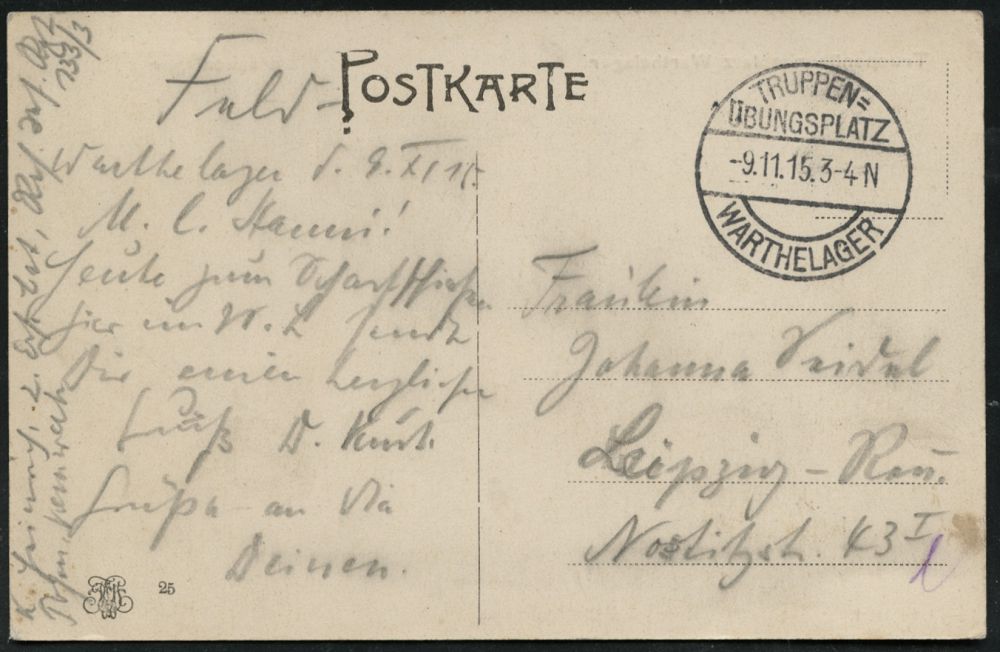 Feld-
POSTKARTE
TRUPPEN=
ÜBUNGSPLATZ
-9.11.15.3-4N
WARTHELAGER
Warthelager d. 9. XI 15.
M. l. Hanni!
Heute zum Scharfschießen
hier im W. L. sendet
Dir einen herzlichen
Gruß D. Kurt.
Grüße an die
Deinen.
Fräulein
Johanna Seidel
Leipzig-Reu.
Nostitzstr. 43 I
25
K. Heinrich, 2. Ers. Batl.
133/3